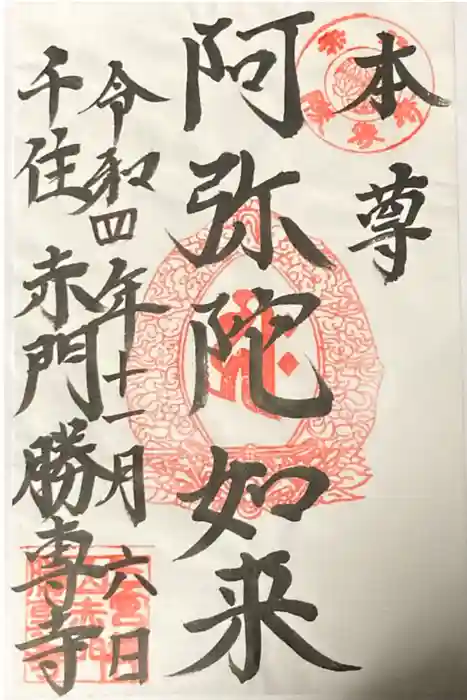 本尊
阿弥陀如来
令和四年十一月六日
千住 赤門 勝専寺